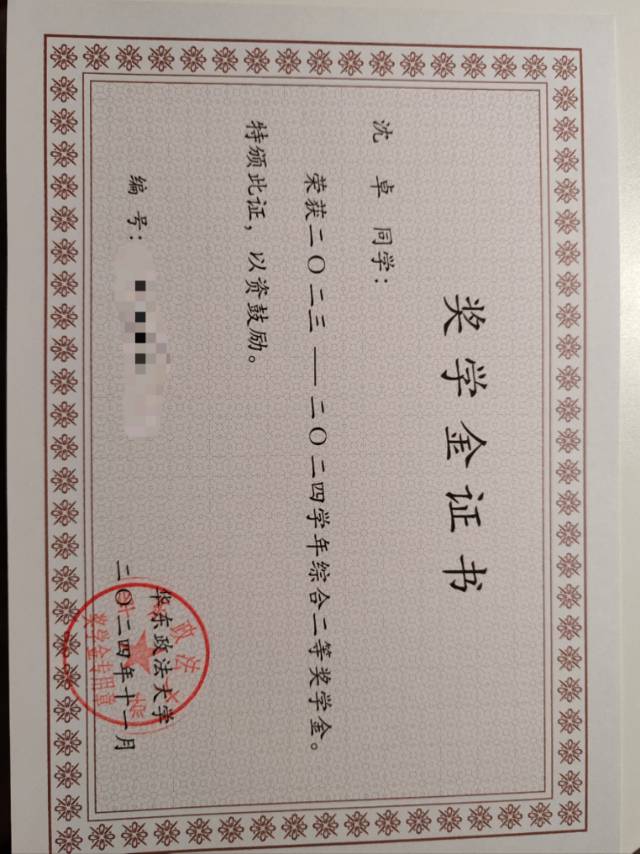 奖学金证书
沈卓 同学：
荣获二〇二三——二〇二四学年综合二等奖学金。
特颁此证，以资鼓励。
编号：
华东政法大学
二〇二四年十一月
奖学金专用章